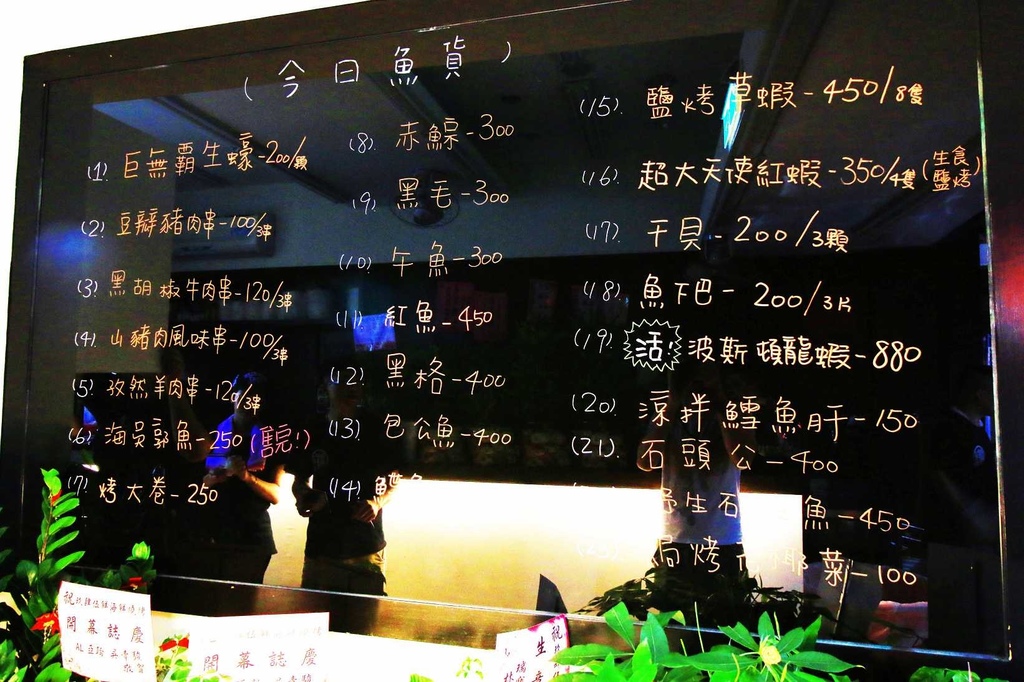 (今日魚貨)
(1). 巨無霸生蠔-200/顆
(2) 豆瓣豬肉串-100/3串
(3) 黑胡椒牛肉串-120/3串
(4). 山豬肉風味串-100/3串
(5) 孜然羊肉串-120/3串
(6) 海吳郭魚-250(售完!)
(7) 烤大卷-250
(8). 赤鯮-300
(9). 黑毛-300
(10) 午魚-300
(11) 紅魚-450
(12). 黑格-400
(13). 包公魚-400
(14)
(15). 鹽烤草蝦-450/8隻
(16). 超大天使紅蝦-350/4隻(生食 鹽烤)
(17). 干貝-200/3顆
(18). 魚下巴-200/3片
(19). 活! 波斯頓龍蝦-880
(20). 涼拌鱈魚肝-150
(21). 石頭公-400
野生石 魚-450
焗烤 椰菜-100
祝
開幕誌慶
敬賀
開幕誌慶
祝
生